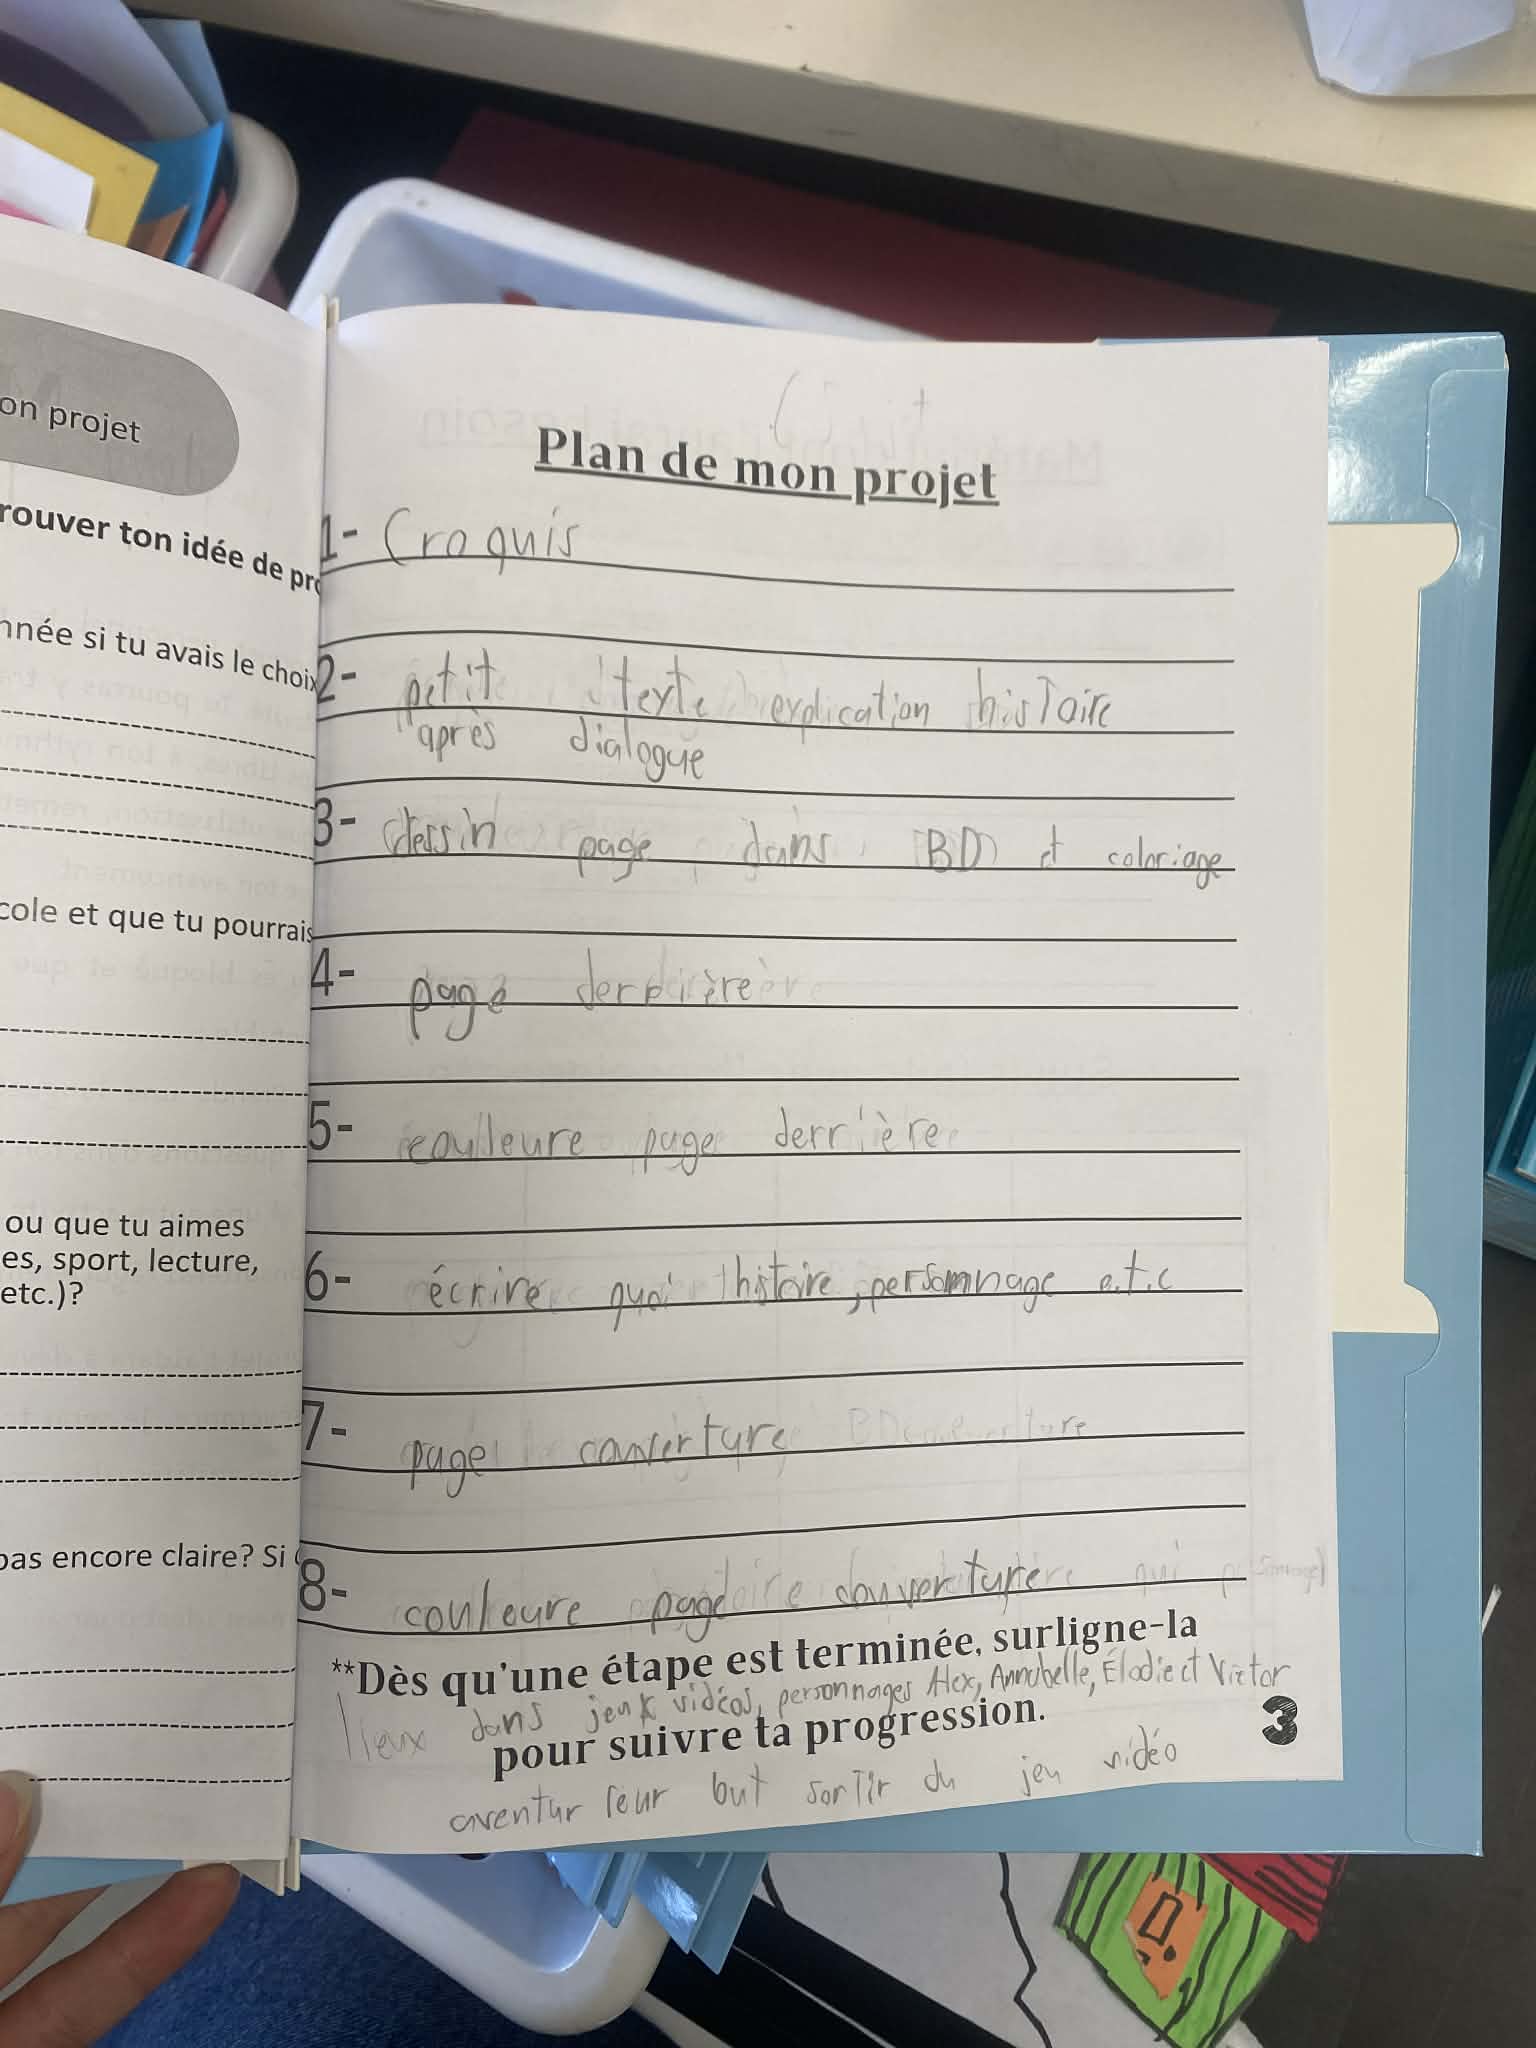 on projet
rouver ton idée de pro
nnée si tu avais le choix
cole et que tu pourrais
ou que tu aimes
es, sport, lecture,
etc.)?
pas encore claire? Si
Plan de mon projet
1- Croquis
2- petit texte explication histoire
après dialogue
3- dessin page dans BD et coloriage
4- page derrière
5- couleure page derrière
6- écrire quoi histoire, personnage e.t.c
7- page couverture
8- couleure page couverture
**Dès qu'une étape est terminée, surligne-la
lieux dans jeux vidéos, personnages Alex, Annabelle, Élodie et Victor
pour suivre ta progression.
3
aventur leur but sortir du jeu vidéo